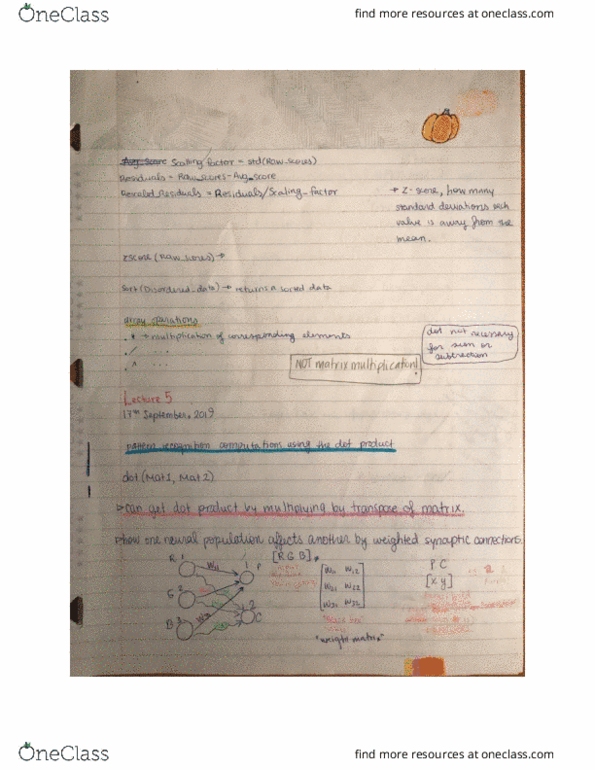 OneClass
find more resources at oneclass.com
Avg_score Scaling factor = std(Raw_scores)
Residuals = Raw_scores - Avg_score
Rescaled_Residuals = Residuals/Scaling_factor
→ Z-score, how many
standard deviations each
value is away from the
mean.
zscore(Raw_scores) →
sort(Disordered_data) → returns a sorted data
array operations
.* → multiplication of corresponding elements
./ ....
.^ ....
dot not necessary
for sum or
subtraction
NOT matrix multiplication!
Lecture 5
13th September, 2019
pattern recognition computations using the dot product
dot(Mat1, Mat2)
→ can get dot product by multiplying by transpose of matrix.
→ how one neural population affects another by weighted synaptic connections.
R 1
W11
1 P
[R G B]
W11 W12
P C
G 2
W21 W22
[x y]
W31 W32
B 3
2
C
"weight matrix"
OneClass
find more resources at oneclass.com